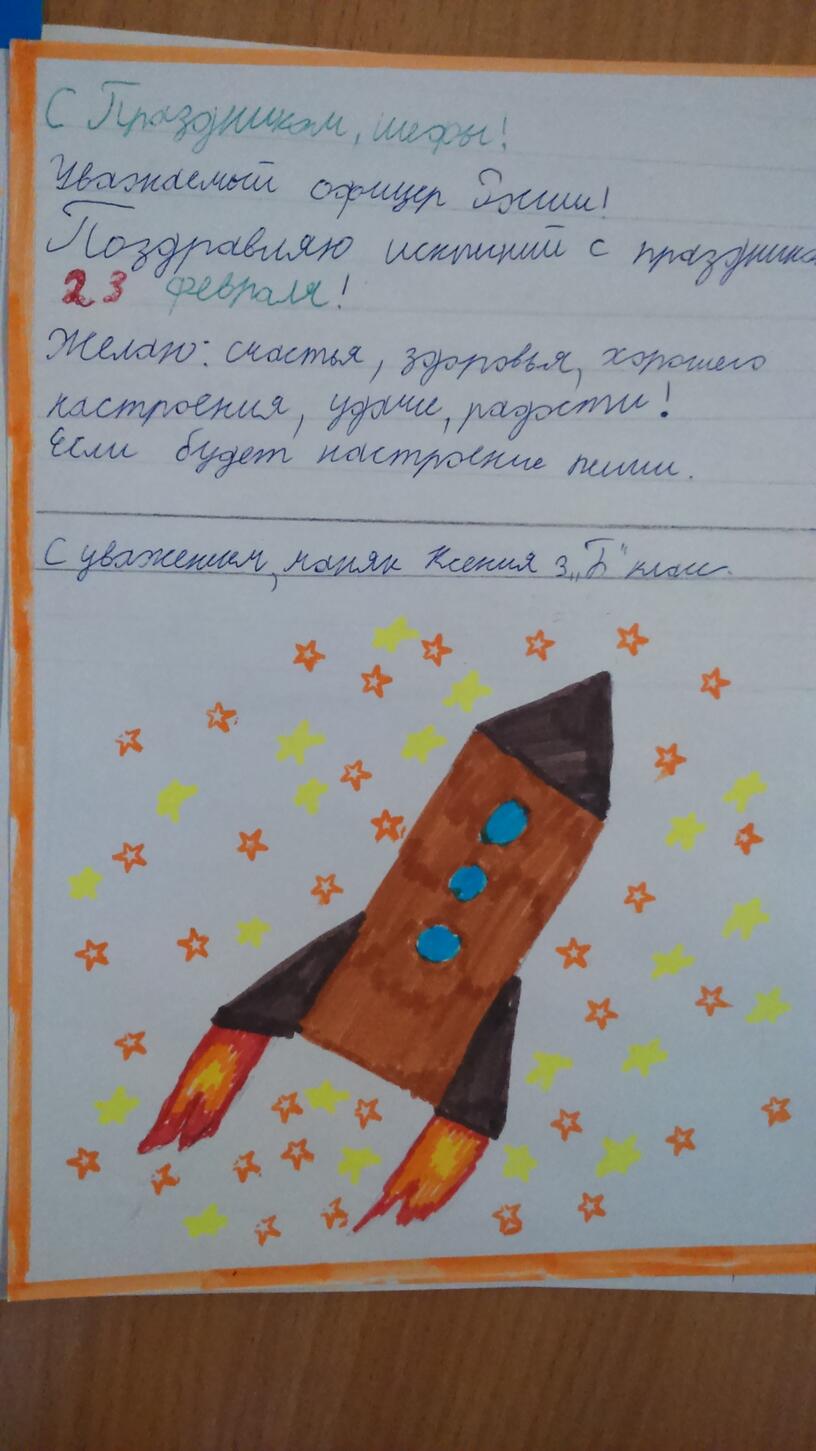 С Праздником, шефы!
Уважаемый офицер
Поздравляю с праздника
23 февраля!
Желаю: счастья, здоровья, хорошего
настроения, удачи, радости!
Если будет настроение пиши.
С уважением, Ксения 3 „Б" клас.